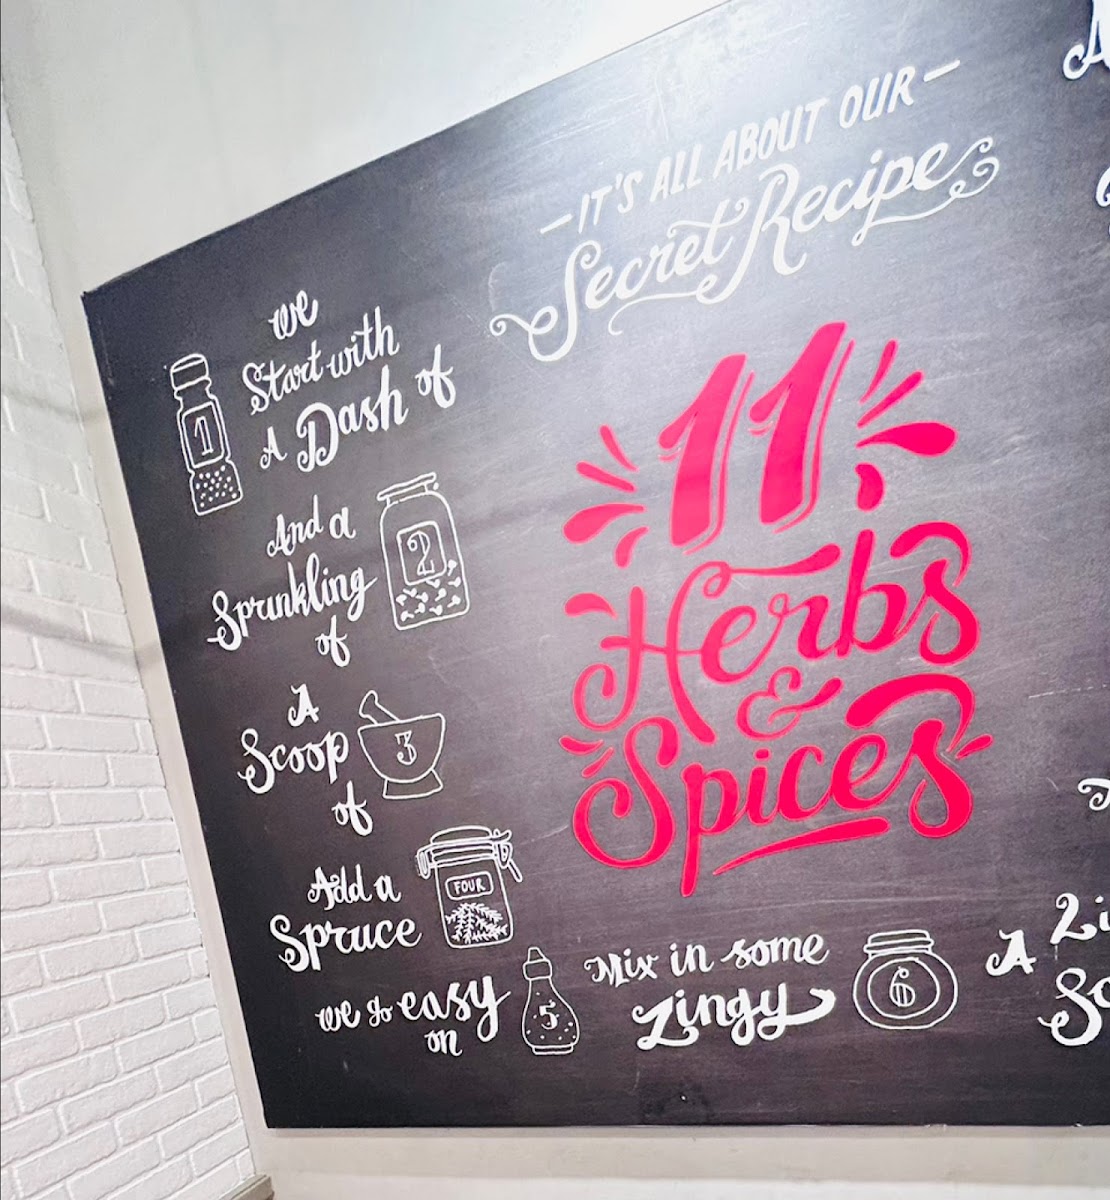 —IT'S ALL ABOUT OUR—
Secret Recipe
11
Herbs
&
Spices
we
Start with
A Dash of
1
And a
Sprinkling
of
2
A
Scoop
of
3
Add a
Spruce
FOUR
we go easy
on
5
Mix in some
Zingy
6
A